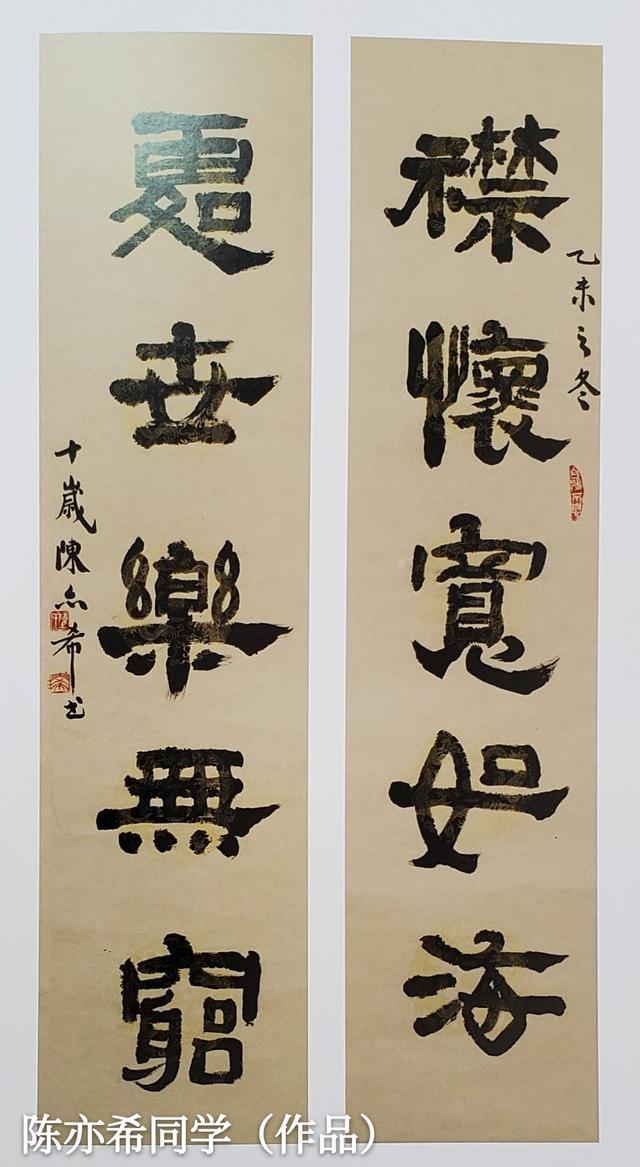 襟懷寬如海
乙未之冬
處世樂無窮
十歲陳亦希书
陈亦希同学（作品）